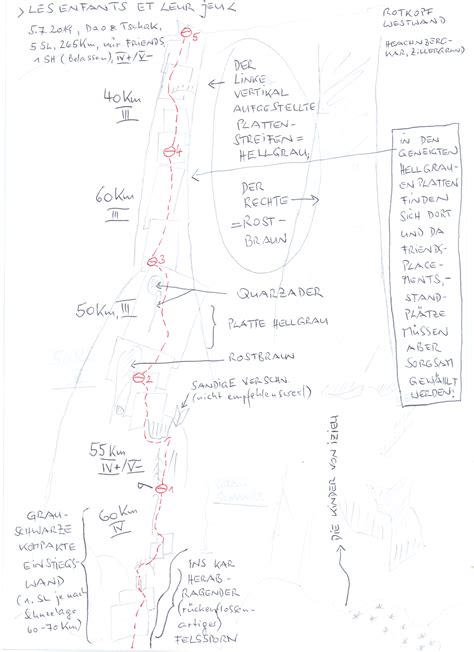 > LES ENFANTS ET LEUR JEU <
5.7.2019, Dao & Tschak,
5 SL, 265 Km, nur FRIENDS,
1 SH (belassen), IV+/V-
ROTKOPF
WESTWAND
KAR, ZILLERGRUND
5
40 Km
III
DER
LINKE
VERTIKAL
AUFGESTELLTE
PLATTEN-
STREIFEN =
HELLGRAU,
4
DER
RECHTE
= ROST-
BRAUN
IN DEN
GENEIGTEN
HELLGRAU-
EN PLATTEN
FINDEN
SICH DORT
UND DA
FRIENDS-
PLACE-
MENTS, -
STAND-
PLÄTZE
MÜSSEN
ABER
SORGSAM
GEWÄHLT
WERDEN!
60 Km
III
3
QUARZADER
50 Km, III
PLATTE HELLGRAU
ROSTBRAUN
2
SANDIGE VERSCHN.
(nicht empfehlenswert)
55 Km
IV+/V-
1
60 Km
IV
GRAU-
SCHWARZE
KOMPAKTE
EINSTIEGS-
WAND
(1. SL je nach
Schneelage
60-70 Km)
INS KAR
HERAB-
RAGENDER
(rückenflossen-
artiges)
FELSSPORN
DIE KINDER VON IZIEU